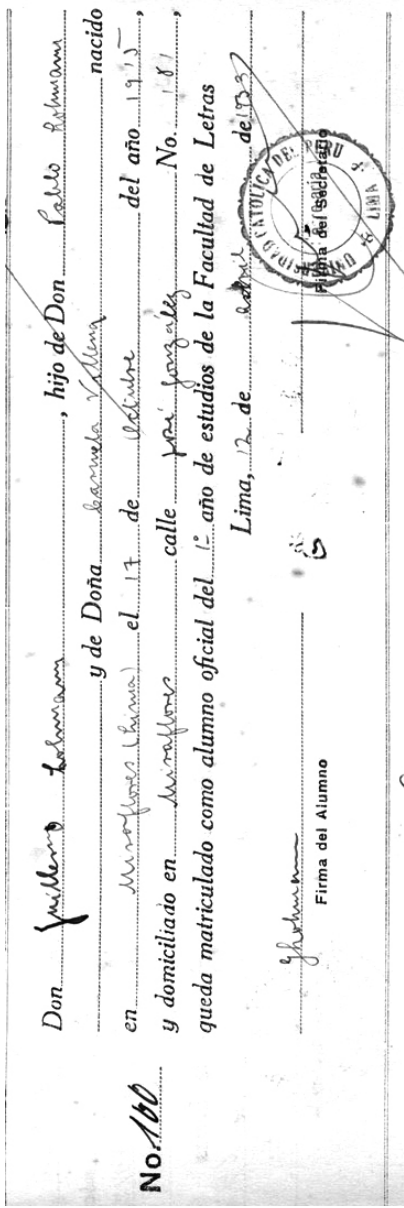 No. 160
Don Guillermo Lohmann, hijo de Don Pablo Lohmann
y de Doña Carmela Villena nacido
en Miraflores (Lima) el 17 de Octubre del año 1915,
y domiciliado en Miraflores calle José González No. 181,
queda matriculado como alumno oficial del 1º año de estudios de la Facultad de Letras
Lima, 12 de Abril de 1933
GLohmann
Firma del Alumno
Firma del Secretario
UNIVERSIDAD CATOLICA DEL PERU
LIMA